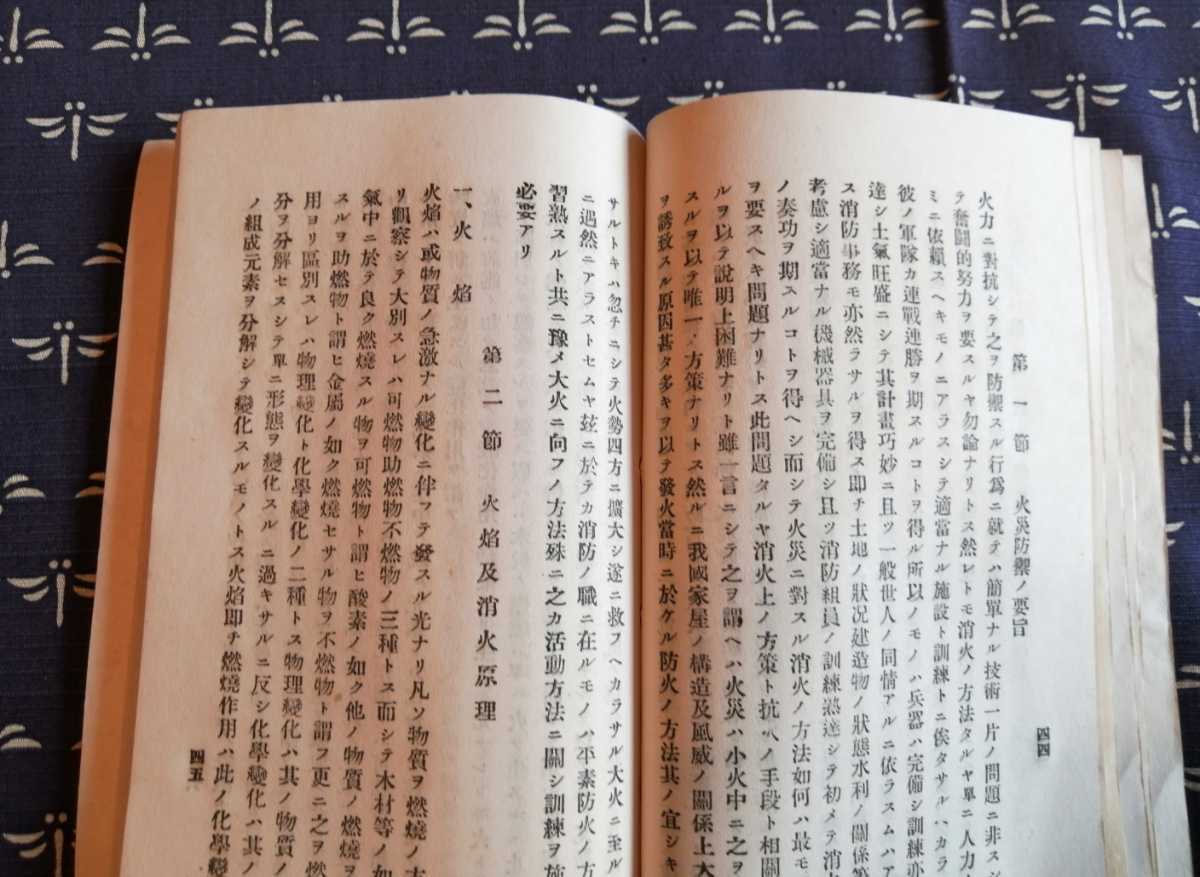 第一節　火災防禦ノ要旨
火力ニ對抗シテ之ヲ防禦スル行爲ニ就テハ簡單ナル技術一片ノ問題ニ非ス
テ奮鬪的努力ヲ要スルヤ勿論ナリトス然レトモ消火ノ方法タルヤ單ニ人力
ミニ依賴スヘキモノニアラスシテ適當ナル施設ト訓練トニ俟タサルハカラ
彼ノ軍隊カ連戰連勝ヲ期スルコトヲ得ル所以ノモノハ兵器ハ完備シ訓練亦
達シ士氣旺盛ニシテ其計畫巧妙ニ且ツ一般世人ノ同情アルニ依ラスムハア
ス消防事務モ亦然ラサルヲ得ス即チ土地ノ狀況建造物ノ狀態水利ノ關係等
考慮シ適當ナル機械器具ヲ完備シ且ツ消防組員ノ訓練熟達シテ初メテ消
ノ奏功ヲ期スルコトヲ得ヘシ而シテ火災ニ對スル消火ノ方法如何ハ最モ
ヲ要スヘキ問題ナリトス此問題タルヤ消火上ノ方策ト抗火ノ手段ト相關
ルヲ以テ說明上困難ナリト雖一言ニシテ之ヲ謂ヘハ火災ハ小火中ニ之ヲ
スルヲ以テ唯一ノ方策ナリトス然ルニ我國家屋ノ構造及風威ノ關係上大
ヲ誘致スル原因甚タ多キヲ以テ發火當時ニ於ケル防火ノ方法其ノ宜シキ
四四
サルトキハ忽チニシテ火勢四方ニ擴大シ遂ニ救フヘカラサル大火ニ至ル
ニ遇然ニアラストセムヤ玆ニ於テカ消防ノ職ニ在ルモノハ平素防火ノ方
習熟スルト共ニ豫メ大火ニ向フノ方法殊ニ之カ活動方法ニ關シ訓練ヲ施
必要アリ
第二節　火焰及消火原理
一、火焰
火焰ハ或物質ノ急激ナル變化ニ伴フテ發スル光ナリ凡ソ物質ヲ燃燒ノ
リ觀察シテ大別スレハ可燃物助燃物不燃物ノ三種トス而シテ木材等ノ如
氣中ニ於テ良ク燃燒スル物ヲ可燃物ト謂ヒ酸素ノ如ク他ノ物質ノ燃燒ヲ
スルヲ助燃物ト謂ヒ金屬ノ如ク燃燒セサル物ヲ不燃物ト謂フ更ニ之ヲ燃
用ヨリ區別スレハ物理變化ト化學變化ノ二種トス物理變化ハ其ノ物質ノ
分ヲ分解セスシテ單ニ形態ヲ變化スルニ過キサルニ反シ化學變化ハ其ノ
ノ組成元素ヲ分解シテ變化スルモノトス火焰即チ燃燒作用ハ此ノ化學變
四五